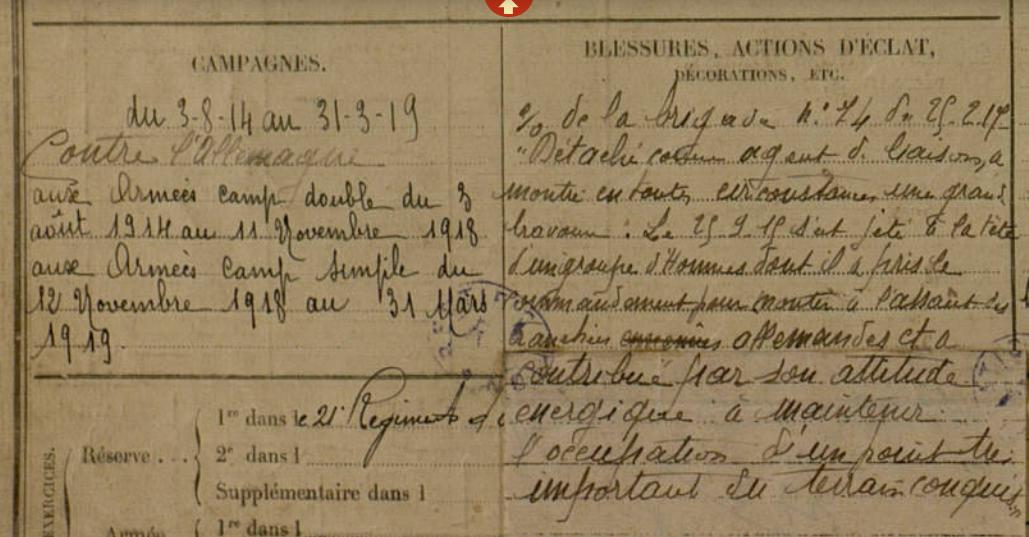 CAMPAGNES.
du 3-8-14 au 31-3-19
Contre l'Allemagne
aux Armées camp double du 3
août 1914 au 11 Novembre 1918
aux Armées camp simple du
12 Novembre 1918 au 31 Mars
1919.
BLESSURES, ACTIONS D'ÉCLAT,
DÉCORATIONS, ETC.
de la brigade n° 74 du
"Détaché comme agent de liaison, a
montré en toutes circonstances une grande
bravoure : Le 25 9 15 s'est jeté à la tête
d'un groupe d'Hommes dont il a pris le
commandement pour monter à l'assaut des
tranchées ennemies allemandes et a
contribué par son attitude
énergique à maintenir
l'occupation d'un point très
important du terrain conquis
EXERCICES.
Réserve ...
1re dans le 21e Régiment
2e dans l
Supplémentaire dans l
Armée
1re dans l